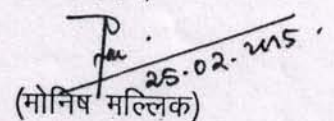 25.02.2015.
(मोनिष मल्लिक)